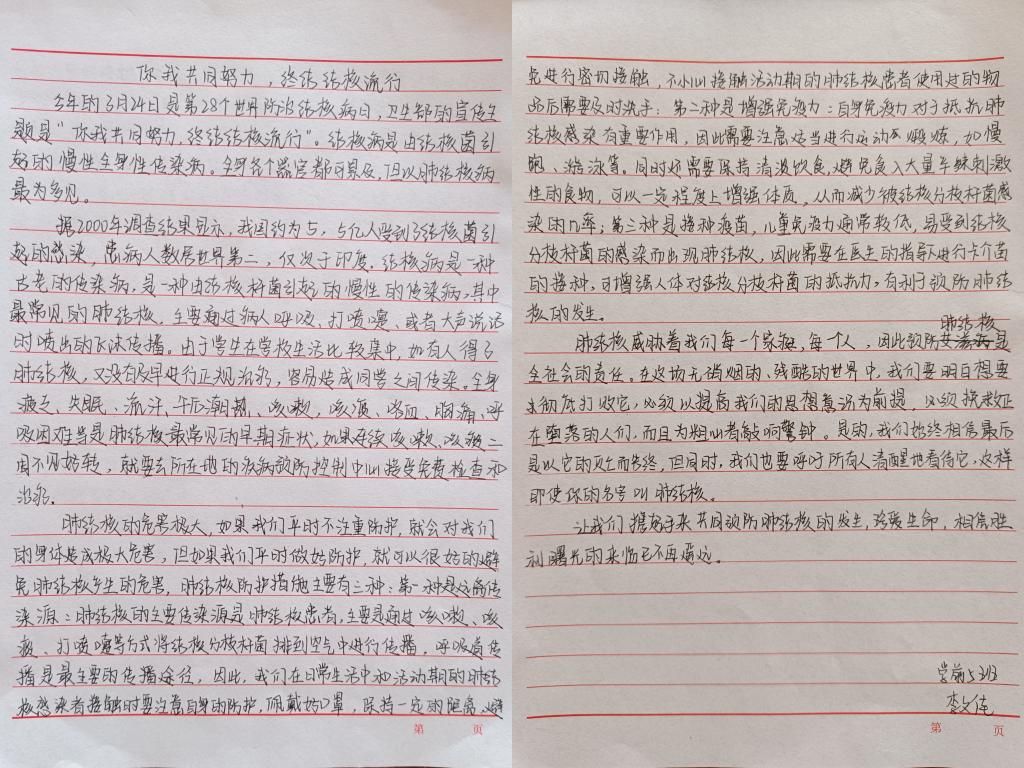 你我共同努力，终结结核流行
今年的3月24日是第28个世界防治结核病日，卫生部的宣传主
题是“你我共同努力，终结结核流行”。结核病是由结核菌引
起的慢性全身性传染病。全身各个器官都可累及，但以肺结核病
最为多见。
据2000年调查结果显示，我国约为5，5亿人受到了结核菌引
起的感染，患病人数居世界第二，仅次于印度。结核病是一种
古老的传染病，是一种由结核杆菌引起的慢性的传染病，其中
最常见的肺结核，主要通过病人呼吸、打喷嚏、或者大声说话
时喷出的飞沫传播。由于学生在学校生活比较集中，如有人得了
肺结核，又没有及早进行正规治疗，容易造成同学之间传染。全身
疲乏、失眠、流汗、午后潮热、咳嗽，咳痰、咯血、胸痛、呼
吸困难当是肺结核最常见的早期症状，如果连续咳嗽、咳痰二
周不见好转，就要去所在地的疾病预防控制中心接受免费检查和
治疗。
肺结核的危害极大，如果我们平时不注重防护，就会对我们
的身体造成极大危害，但如果我们平时做好防护，就可以很好的避
免肺结核产生的危害，肺结核防护措施主要有三种：第一种是远离传
染源：肺结核的主要传染源是肺结核患者，主要是通过咳嗽、咳
痰、打喷嚏等方式将结核分枝杆菌排到空气中进行传播，呼吸道传
播是最主要的传播途径，因此，我们在日常生活中和活动期的肺结
核感染者接触时要注意自身的防护，佩戴好口罩，保持一定的距离，避
免进行密切接触，不小心接触活动期的肺结核患者使用过的物
品后需要及时洗手；第二种是增强免疫力：自身免疫力对于抵抗肺
结核感染有重要作用，因此需要注意适当进行运动 锻炼，如慢
跑、游泳等。同时还需要保持清淡饮食，避免食入大量辛辣刺激
性的食物，可以一定程度上增强体质，从而减少被结核分枝杆菌感
染的几率；第三种是接种疫苗，儿童免疫力通常较低，易受到结核
分枝杆菌的感染而出现肺结核，因此需要在医生的指导下进行卡介苗
的接种，可增强人体对结核分枝杆菌的抵抗力，有利于预防肺结
核的发生。
肺结核
肺结核威胁着我们每一个家庭，每一个人，因此预防是
全社会的责任。在这场无谓烟的、残酷的世界中，我们要明白想要
彻底打败它，必须以提高我们的思想意识为前提，必须挽救正
在堕落的人们，而且为粗心者敲响警钟。是的，我们始终相信最后
是以它的灭亡而告终，但同时，我们也要呼吁所有人清醒地看待它，这样
即使你的名字叫肺结核。
让我们握起手来共同预防肺结核的发生，珍爱生命，相信胜
利曙光的来临已不再遥远。
学前5班
第 页
第 页